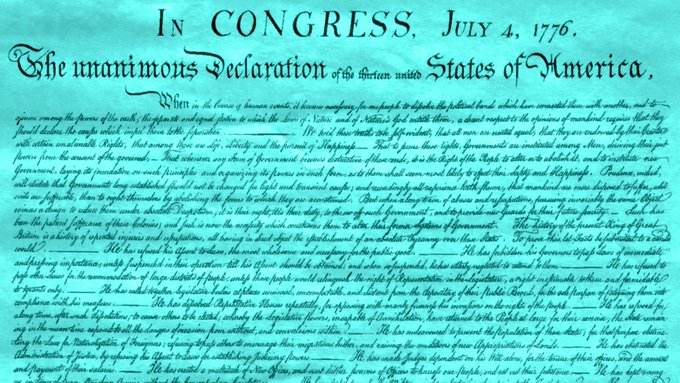 In CONGRESS, July 4, 1776.
The unanimous Declaration of the thirteen united States of America,
When in the Course of human events, it becomes necessary for one people to dissolve the political bands which have connected them with another, and to
assume among the powers of the earth, the separate and equal station to which the Laws of Nature and of Nature's God entitle them, a decent respect to the opinions of mankind requires that they
should declare the causes which impel them to the separation. — We hold these truths to be self-evident, that all men are created equal, that they are endowed by their Creator
with certain unalienable Rights, that among these are Life, Liberty and the pursuit of Happiness. — That to secure these rights, Governments are instituted among Men, deriving their just
powers from the consent of the governed, — That whenever any Form of Government becomes destructive of these ends, it is the Right of the People to alter or to abolish it, and to institute new
Government, laying its foundation on such principles and organizing its powers in such form, as to them shall seem most likely to effect their Safety and Happiness. Prudence, indeed,
will dictate that Governments long established should not be changed for light and transient causes; and accordingly all experience hath shewn, that mankind are more disposed to suffer, while
evils are sufferable, than to right themselves by abolishing the forms to which they are accustomed. But when a long train of abuses and usurpations, pursuing invariably the same Object
evinces a design to reduce them under absolute Despotism, it is their right, it is their duty, to throw off such Government, and to provide new Guards for their future security. — Such has
been the patient sufferance of these Colonies; and such is now the necessity which constrains them to alter their former Systems of Government. The history of the present King of Great
Britain is a history of repeated injuries and usurpations, all having in direct object the establishment of an absolute Tyranny over these States. To prove this, let Facts be submitted to a candid
world. — He has refused his Assent to Laws, the most wholesome and necessary for the public good. — He has forbidden his Governors to pass Laws of immediate
and pressing importance, unless suspended in their operation till his Assent should be obtained; and when so suspended, he has utterly neglected to attend to them. — He has refused to
pass other Laws for the accommodation of large districts of people, unless those people would relinquish the right of Representation in the Legislature, a right inestimable to them and formidable
to tyrants only. — He has called together legislative bodies at places unusual, uncomfortable, and distant from the depository of their Public Records, for the sole purpose of fatiguing them into
compliance with his measures. — He has dissolved Representative Houses repeatedly, for opposing with manly firmness his invasions on the rights of the people. — He has refused for a
long time, after such dissolutions, to cause others to be elected; whereby the Legislative powers, incapable of Annihilation, have returned to the People at large for their exercise; the State remain-
ing in the mean time exposed to all the dangers of invasion from without, and convulsions within. — He has endeavoured to prevent the population of these States; for that purpose obstruc-
ting the Laws for Naturalization of Foreigners; refusing to pass others to encourage their migrations hither, and raising the conditions of new Appropriations of Lands. — He has obstructed the
Administration of Justice, by refusing his Assent to Laws for establishing Judiciary powers. — He has made Judges dependent on his Will alone, for the tenure of their offices, and the amount
and payment of their salaries. — He has erected a multitude of New Offices, and sent hither swarms of Officers to harrass our people, and eat out their substance. — He has kept among